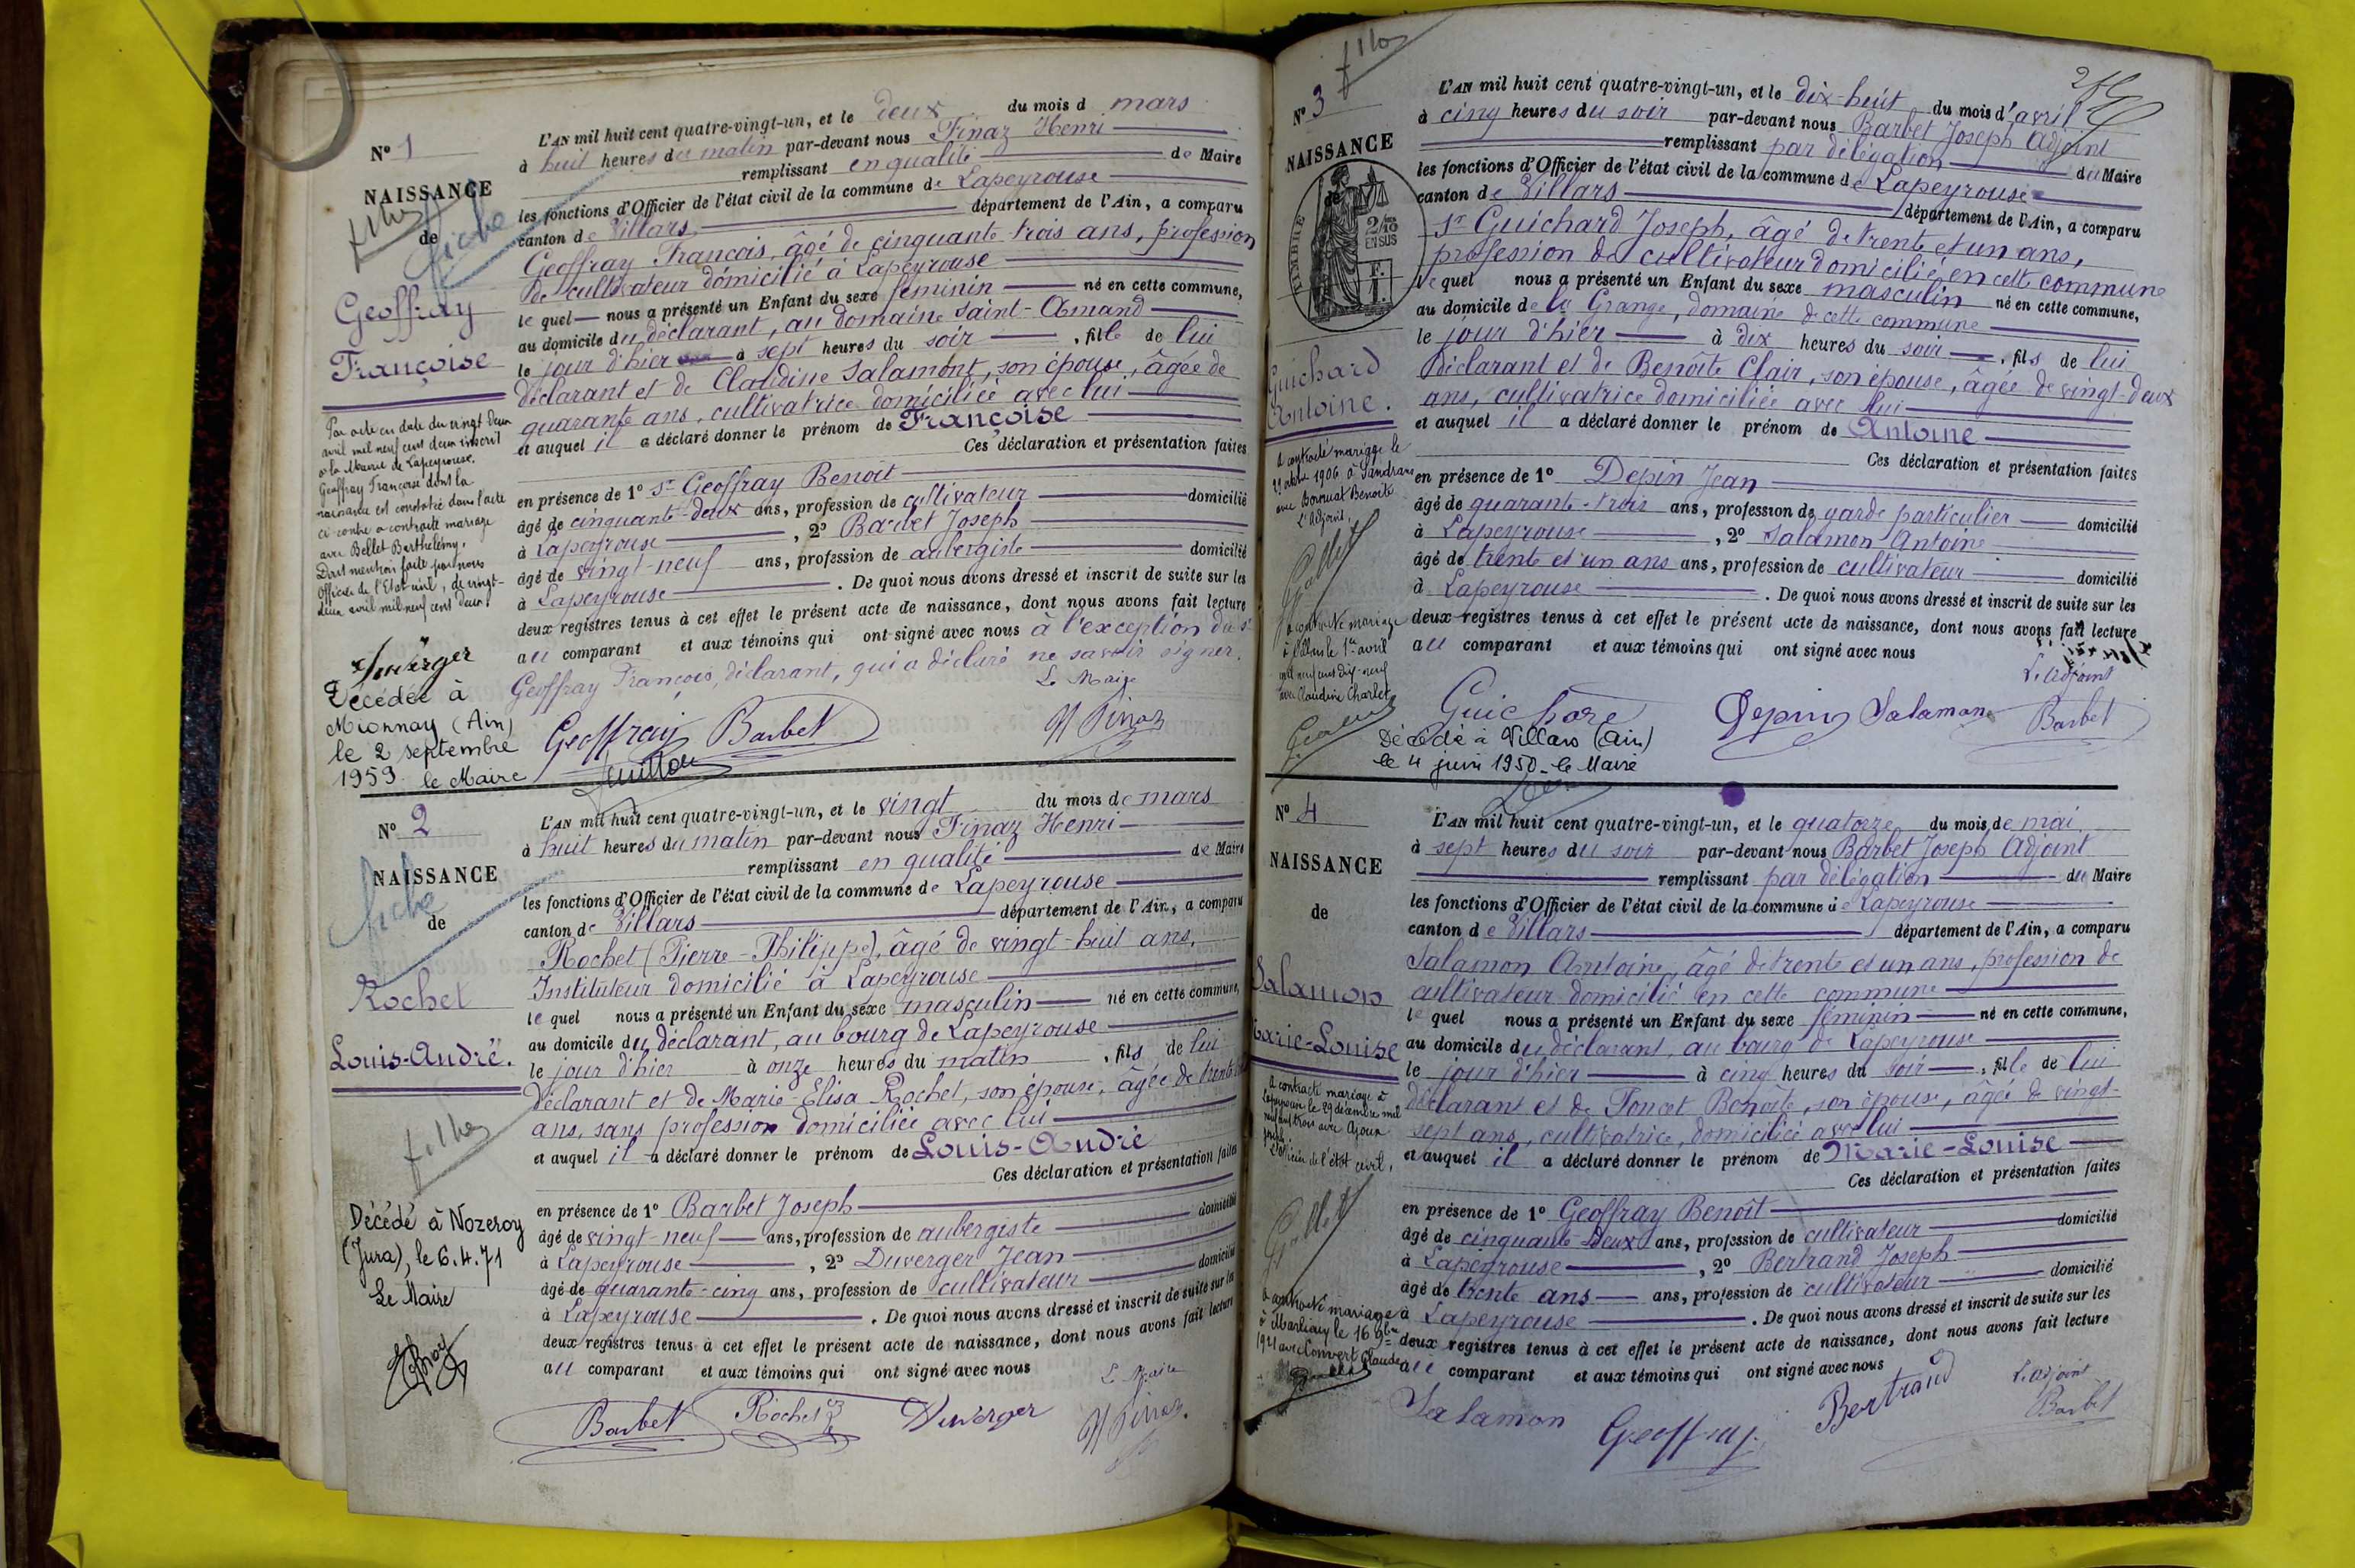 Nº 1
NAISSANCE
de
Geoffray
Françoise
Par acte en date du vingt deux
avril mil neuf cent deux inscrit
à la Mairie de Lapeyrouse,
Geoffray Françoise dont la
naissance est constatée dans l'acte
ci-contre a contracté mariage
avec Bellet Barthélemy.
Dont mention faite par nous
Officier de l'Etat-civil, le vingt-
deux avril mil neuf cent deux.
Duverger
Décédée à
Mionnay (Ain)
le 2 septembre
1959. le Maire
L'AN mil huit cent quatre-vingt-un, et le deux du mois d mars
à huit heures du matin par-devant nous Finaz Henri
remplissant en qualité de Maire
les fonctions d'Officier de l'état civil de la commune de Lapeyrouse
canton de Villars département de l'Ain, a comparu
Geoffray François, âgé de cinquante trois ans, profession
de cultivateur domicilié à Lapeyrouse
lequel nous a présenté un Enfant du sexe féminin né en cette commune,
au domicile du déclarant, au domaine Saint-Amand
le jour d'hier à sept heures du soir, fille de lui
déclarant et de Claudine Salamont, son épouse, âgée de
quarante ans, cultivatrice domiciliée avec lui
et auquel il a déclaré donner le prénom de Françoise
Ces déclaration et présentation faites
en présence de 1º Sr Geoffray Benoit
âgé de cinquante-deux ans, profession de cultivateur domicilié
à Lapeyrouse, 2º Barbet Joseph
âgé de vingt-neuf ans, profession de aubergiste domicilié
à Lapeyrouse. De quoi nous avons dressé et inscrit de suite sur les
deux registres tenus à cet effet le présent acte de naissance, dont nous avons fait lecture
au comparant et aux témoins qui ont signé avec nous à l'exception du Sr
Geoffray François, déclarant, qui a déclaré ne savoir signer.
Le Maire
Geoffray Barbet H Finaz
Nº 2
NAISSANCE
fiche
de
Rochet
Louis-André.
Décédé à Nozeroy
(Jura), le 6.4.71
Le Maire
L'AN mil huit cent quatre-vingt-un, et le vingt du mois de mars
à huit heures du matin par-devant nous Finaz Henri
remplissant en qualité de Maire
les fonctions d'Officier de l'état civil de la commune de Lapeyrouse
canton de Villars département de l'Ain, a comparu
Rochet (Pierre-Philippe), âgé de vingt-huit ans,
Instituteur domicilié à Lapeyrouse
lequel nous a présenté un Enfant du sexe masculin né en cette commune,
au domicile du déclarant, au bourg de Lapeyrouse
le jour d'hier à onze heures du matin, fils de lui
déclarant et de Marie-Elisa Rochet, son épouse, âgée de trente
ans, sans profession domiciliée avec lui
et auquel il a déclaré donner le prénom de Louis-André
Ces déclaration et présentation faites
en présence de 1º Barbet Joseph
âgé de vingt-neuf ans, profession de aubergiste domicilié
à Lapeyrouse, 2º Duverger Jean
âgé de quarante-cinq ans, profession de cultivateur domicilié
à Lapeyrouse. De quoi nous avons dressé et inscrit de suite sur les
deux registres tenus à cet effet le présent acte de naissance, dont nous avons fait lecture
au comparant et aux témoins qui ont signé avec nous
Le Maire
Barbet Rochet Duverger H Finaz
Nº 3
NAISSANCE
de
TIMBRE
2/10
EN SUS
Guichard
Antoine.
A contracté mariage le
octobre 1906 à Sandrans
avec Benoite
L'Adjoint,
A contracté mariage
à Villars le 1er avril
mil neuf cent dix-neuf
avec Claudine Charlet
L'AN mil huit cent quatre-vingt-un, et le dix-huit du mois d'avril
à cinq heures du soir par-devant nous Barbet Joseph Adjoint
remplissant par délégation du Maire
les fonctions d'Officier de l'état civil de la commune de Lapeyrouse
canton de Villars département de l'Ain, a comparu
Sr Guichard Joseph, âgé de trente et un ans,
profession de cultivateur domicilié en cette commune
lequel nous a présenté un Enfant du sexe masculin né en cette commune,
au domicile de la Grange, domaine de cette commune
le jour d'hier à dix heures du soir, fils de lui
déclarant et de Benoîte Clair, son épouse, âgée de vingt-deux
ans, cultivatrice domiciliée avec lui
et auquel il a déclaré donner le prénom de Antoine
Ces déclaration et présentation faites
en présence de 1º Depin Jean
âgé de quarante-trois ans, profession de garde particulier domicilié
à Lapeyrouse, 2º Salamon Antoine
âgé de trente et un ans ans, profession de cultivateur domicilié
à Lapeyrouse. De quoi nous avons dressé et inscrit de suite sur les
deux registres tenus à cet effet le présent acte de naissance, dont nous avons fait lecture
au comparant et aux témoins qui ont signé avec nous
L'adjoint
Guichard Depin Salamon Barbet
Décédé à Villars (Ain)
le 4 juin 1950 - le Maire
Nº 4
NAISSANCE
de
Salamon
Marie-Louise
A contracté mariage à
Lapeyrouse le 29 décembre mil
neuf cent trois avec
L'officier de l'état civil,
A contracté mariage
à Marlieux le 16 9bre
1921 avec Convert Claude
L'AN mil huit cent quatre-vingt-un, et le quatorze du mois de mai
à sept heures du soir par-devant nous Barbet Joseph Adjoint
remplissant par délégation du Maire
les fonctions d'Officier de l'état civil de la commune de Lapeyrouse
canton de Villars département de l'Ain, a comparu
Salamon Antoine, âgé de trente et un ans, profession de
cultivateur domicilié en cette commune
lequel nous a présenté un Enfant du sexe féminin né en cette commune,
au domicile du déclarant, au bourg de Lapeyrouse
le jour d'hier à cinq heures du soir, fille de lui
déclarant et de Poncet Benoîte, son épouse, âgée de vingt-
sept ans, cultivatrice, domiciliée avec lui
et auquel il a déclaré donner le prénom de Marie-Louise
Ces déclaration et présentation faites
en présence de 1º Geoffray Benoît
âgé de cinquante-deux ans, profession de cultivateur domicilié
à Lapeyrouse, 2º Bertrand Joseph
âgé de trente ans ans, profession de cultivateur domicilié
à Lapeyrouse. De quoi nous avons dressé et inscrit de suite sur les
deux registres tenus à cet effet le présent acte de naissance, dont nous avons fait lecture
au comparant et aux témoins qui ont signé avec nous
L'adjoint
Salamon Geoffray Bertrand Barbet